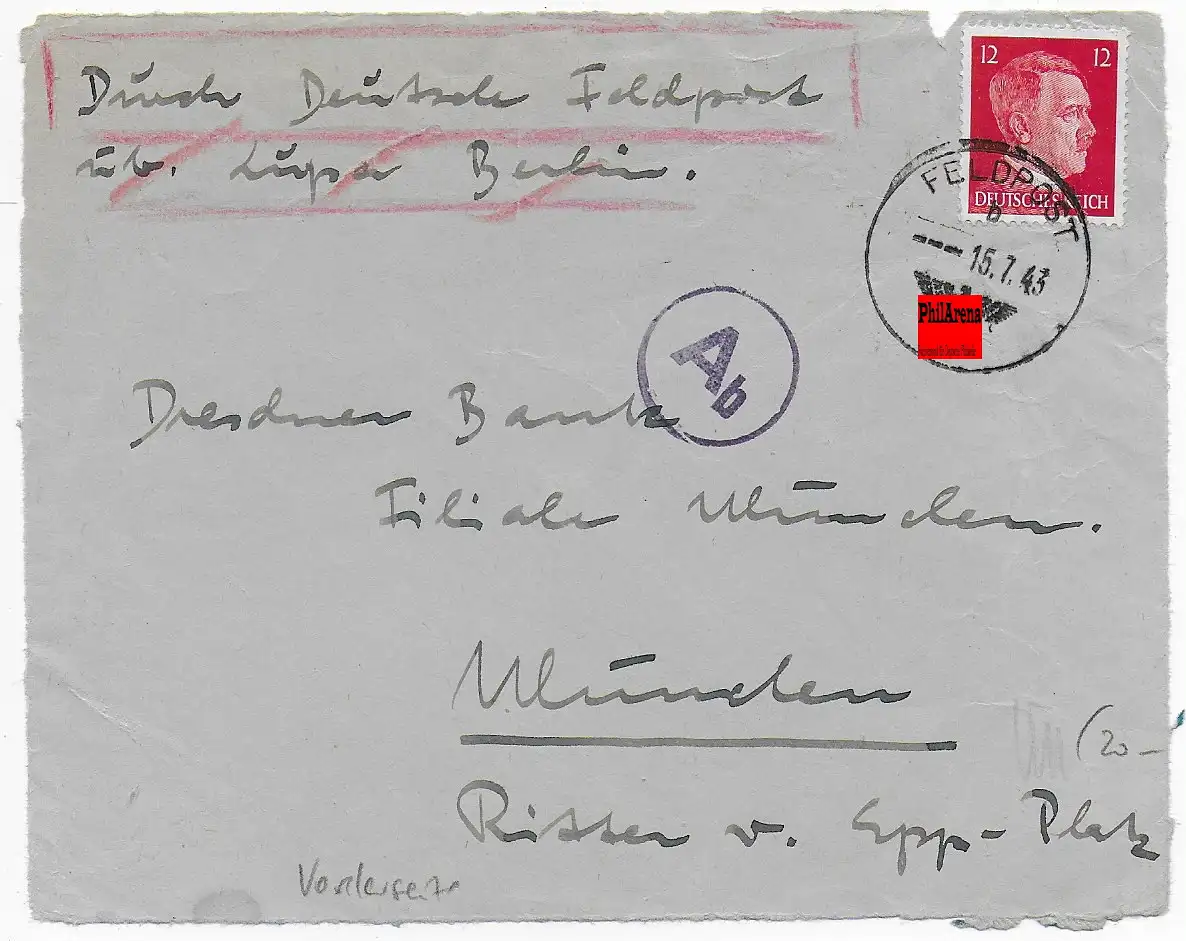 Durch Deutsche Feldpost
üb. Lupa Berlin.
12 12
DEUTSCHES REICH
FELDPOST
b
15.7.43
PhilArena
Ab
Dresdner Bank
Filiale München.
München
(20-
Ritter v. Epp-Platz
Vorderseite